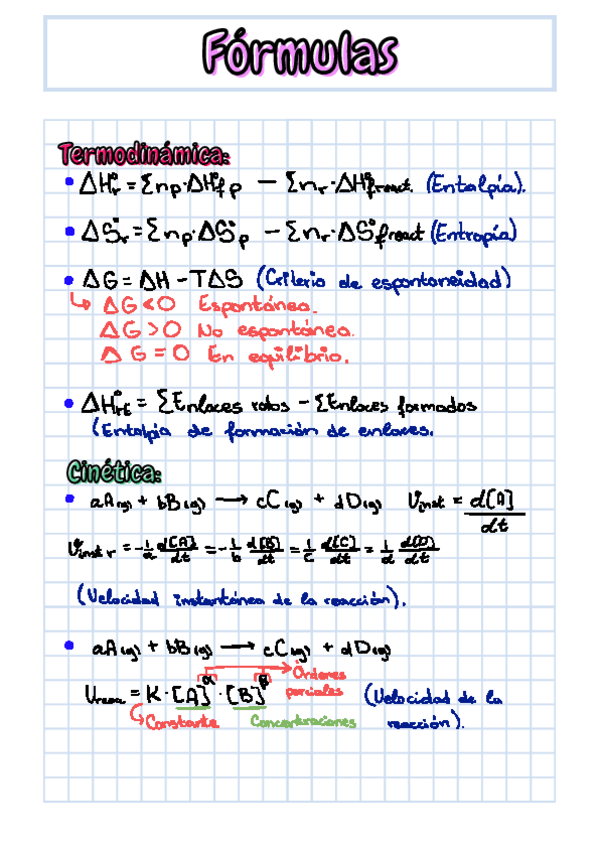 Fórmulas
Termodinámica:
• ΔHr° = Σnp·ΔHf°p − Σnr·ΔHf°react. (Entalpía).
• ΔSr° = Σnp·ΔS°p − Σnr·ΔS°freact (Entropía)
• ΔG = ΔH − TΔS (Criterio de espontaneidad)
↳ ΔG < 0 Espontánea.
ΔG > 0 No espontánea.
ΔG = 0 En equilibrio.
• ΔH°rE = ΣEnlaces rotos − ΣEnlaces formados
(Entalpia de formación de enlaces.
Cinética:
• aA(g) + bB(g) → cC(g) + dD(g) Vinst = d[A]/dt
Vinst r = −1/a d[A]/dt = −1/b d[B]/dt = 1/c d[C]/dt = 1/d d[D]/dt
(Velocidad instantánea de la reacción).
• aA(g) + bB(g) → cC(g) + dD(g)
Órdenes
parciales
Vreac = K·[A]^α·[B]^β (Velocidad de la
Constante Concentraciones reacción).